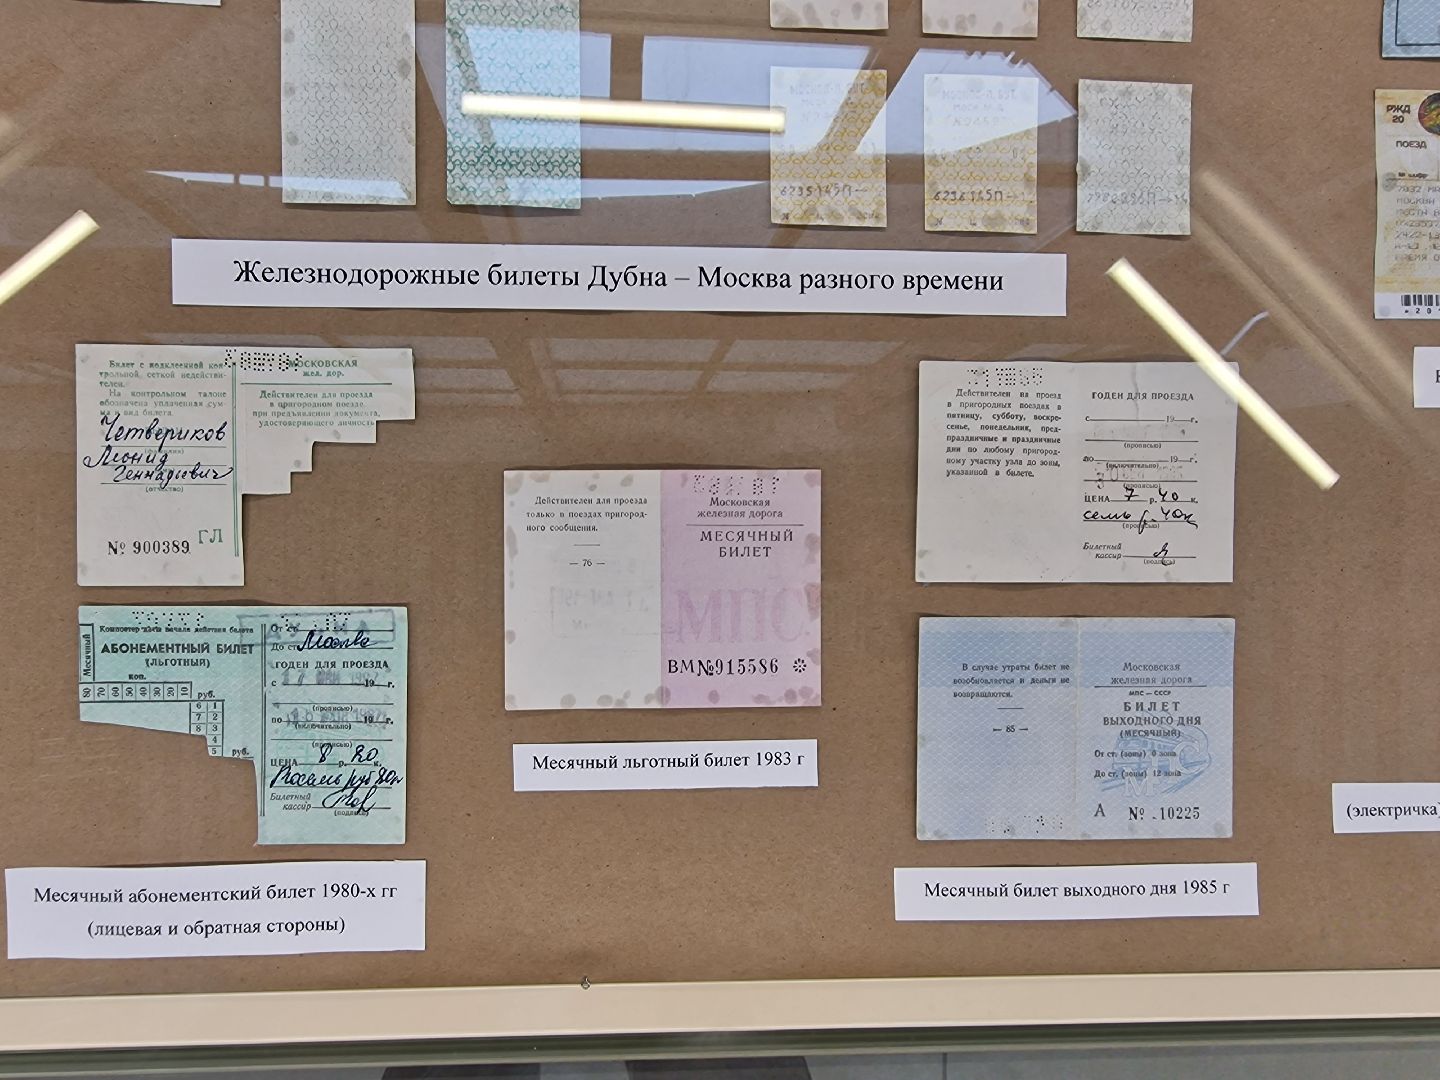 6235145П
6236145П
РЖД
20
ПОЕЗД
Железнодорожные билеты Дубна – Москва разного времени
Билет с подклеенной кон-
трольной сеткой недействи-
телен.
На контрольном талоне
обозначена уплаченная сум-
ма и вид билета.
Четвериков
Леонид
Геннадиевич
(отчество)
ГЛ
№ 900389
МОСКОВСКАЯ
жел. дор.
Действителен для проезда
в пригородном поезде
при предъявлении документа,
удостоверяющего личность
Компостер даты начала действия билета
Месячный
АБОНЕМЕНТНЫЙ БИЛЕТ
(ЛЬГОТНЫЙ)
коп.
80 70 60 50 40 30 20 10 руб.
6 1
7 2
8 3
4
5 руб.
От ст.
До ст. Москва
ГОДЕН ДЛЯ ПРОЕЗДА
с 19 г.
(прописью)
по 19 г.
(включительно)
(прописью)
ЦЕНА 8 р. 20 к.
Билетный
кассир
(подпись)
Месячный абонементский билет 1980-х гг
(лицевая и обратная стороны)
Действителен для проезда
только в поездах пригород-
ного сообщения.
— 76 —
Московская
железная дорога
МЕСЯЧНЫЙ
БИЛЕТ
МПС
ВМ№915586
Месячный льготный билет 1983 г
Действителен на проезд
в пригородных поездах в
пятницу, субботу, воскре-
сенье, понедельник, пред-
праздничные и праздничные
дни по любому пригород-
ному участку узла до зоны,
указанной в билете.
ГОДЕН ДЛЯ ПРОЕЗДА
с 19 г.
(прописью)
по 19 г.
(включительно)
(прописью)
ЦЕНА 7 р. 40 к.
семь р. 40к
(прописью)
Билетный
кассир
(подпись)
В случае утраты билет не
возобновляется и деньги не
возвращаются.
— 85 —
Московская
железная дорога
МПС — СССР
БИЛЕТ
ВЫХОДНОГО ДНЯ
(МЕСЯЧНЫЙ)
От ст. (зоны) 0 зона
До ст. (зоны) 12 зона
А № 10225
Месячный билет выходного дня 1985 г
(электричка)